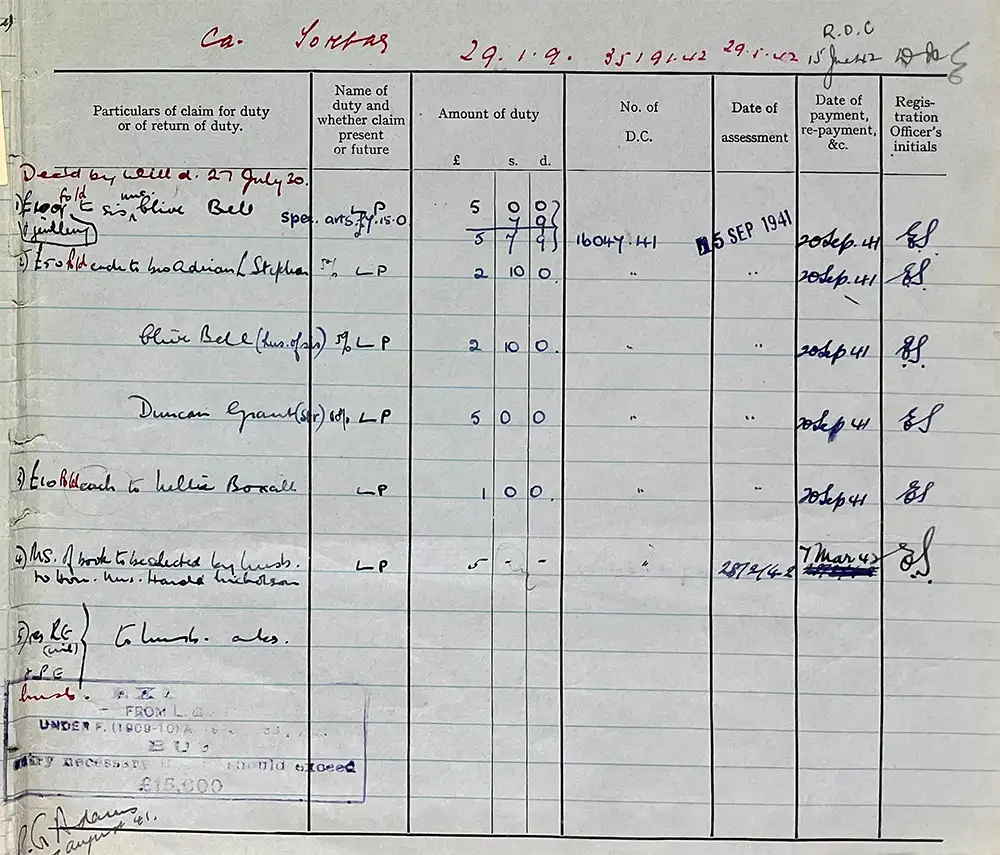 R.D.C
Ca. 29.1.9. 35191.42 29.5.42 15 June 42
Particulars of claim for duty or of return of duty.
Name of duty and whether claim present or future
Amount of duty
£ s. d.
No. of D.C.
Date of assessment
Date of payment, re-payment, &c.
Registration Officer's initials
Decd by Will d. 27 July 30.
1) £100 fold to sis Mrs. Clive Bell
L P 5 0 0
spec. 7 9
& jewellery
5 7 9 16047.41 5 SEP 1941 20 Sep. 41 ES
2) £50 fold each to bro Adrian L Stephen 5% L P 2 10 0. " " 20 Sep. 41 ES
Clive Bell (hus. of sis) 5% L P 2 10 0. " " 20 Sep 41 ES
Duncan Grant (str) 10% L P 5 0 0 " " 20 Sep 41 ES
3) £10 fold each to Nellie Boxall L P 1 0 0. " " 20 Sep 41 ES
4) MS. of book to be selected by husb.
to Hon. Mrs. Harold Nicholson L P 5 - - " 28/2/42 7 Mar 42 ES.
5) res RE
(nil)
& PE
to husb. abs.
husb.
FROM L.
UNDER F. (1909-10) A.
necessary should exceed
£15,000
Adams
August 41.